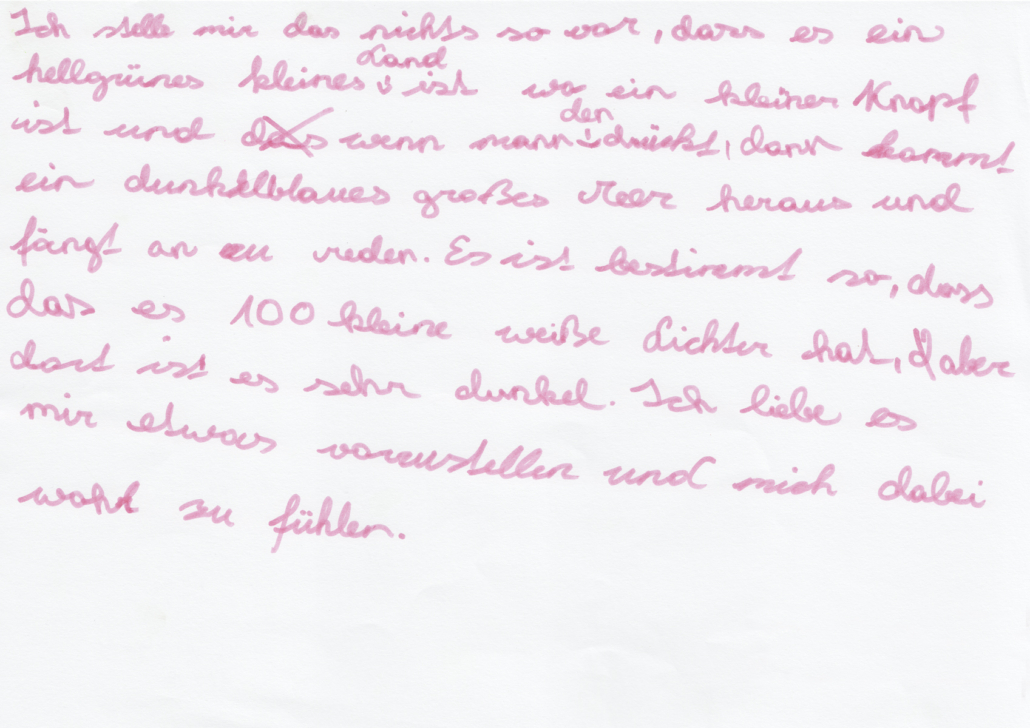 Ich stelle mir das nichts so vor, dass es ein
hellgrünes kleines Land ist wo ein kleiner Knopf
ist und das wenn mann den drückt, dann kommt
ein dunkelblaues großes Meer heraus und
fängt an zu reden. Es ist bestimmt so, dass
das es 100 kleine weiße Lichter hat, daber
dort ist es sehr dunkel. Ich liebe es
mir etwas vorzustellen und mich dabei
wohl zu fühlen.